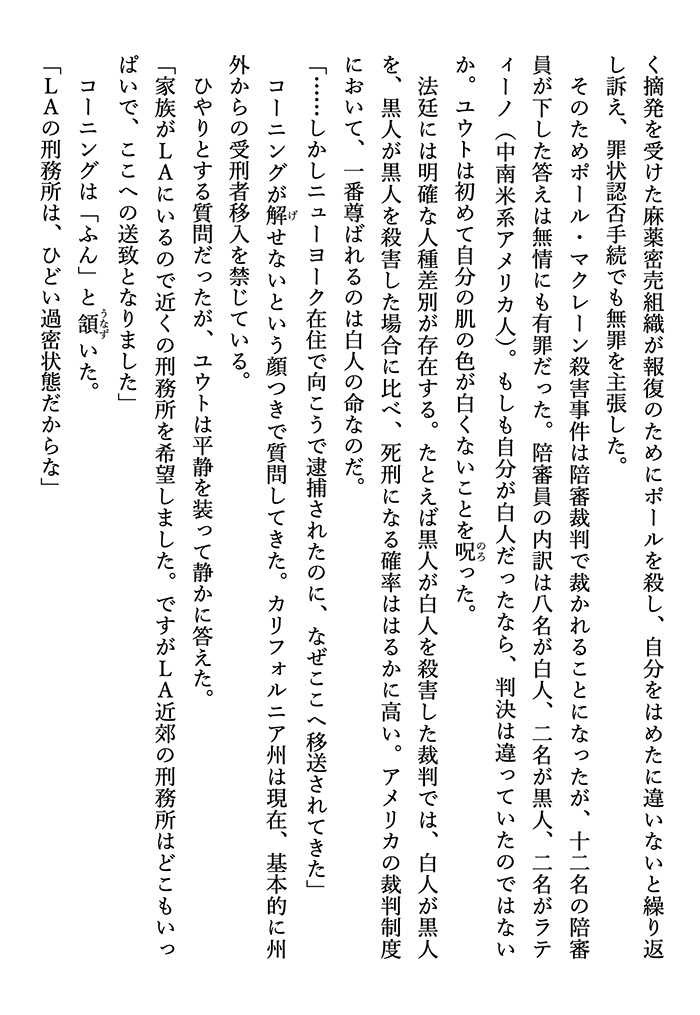 く摘発を受けた麻薬密売組織が報復のためにポールを殺し、自分をはめたに違いないと繰り返
し訴え、罪状認否手続でも無罪を主張した。
そのためポール・マクレーン殺害事件は陪審裁判で裁かれることになったが、十二名の陪審
員が下した答えは無情にも有罪だった。陪審員の内訳は八名が白人、二名が黒人、二名がラテ
ィーノ（中南米系アメリカ人）。もしも自分が白人だったなら、判決は違っていたのではない
か。ユウトは初めて自分の肌の色が白くないことを呪のろった。
法廷には明確な人種差別が存在する。たとえば黒人が白人を殺害した裁判では、白人が黒人
を、黒人が黒人を殺害した場合に比べ、死刑になる確率ははるかに高い。アメリカの裁判制度
において、一番尊ばれるのは白人の命なのだ。
「……しかしニューヨーク在住で向こうで逮捕されたのに、なぜここへ移送されてきた」
コーニングが解げせないという顔つきで質問してきた。カリフォルニア州は現在、基本的に州
外からの受刑者移入を禁じている。
ひやりとする質問だったが、ユウトは平静を装って静かに答えた。
「家族がＬＡにいるので近くの刑務所を希望しました。ですがＬＡ近郊の刑務所はどこもいっ
ぱいで、ここへの送致となりました」
コーニングは「ふん」と頷うなずいた。
「ＬＡの刑務所は、ひどい過密状態だからな」